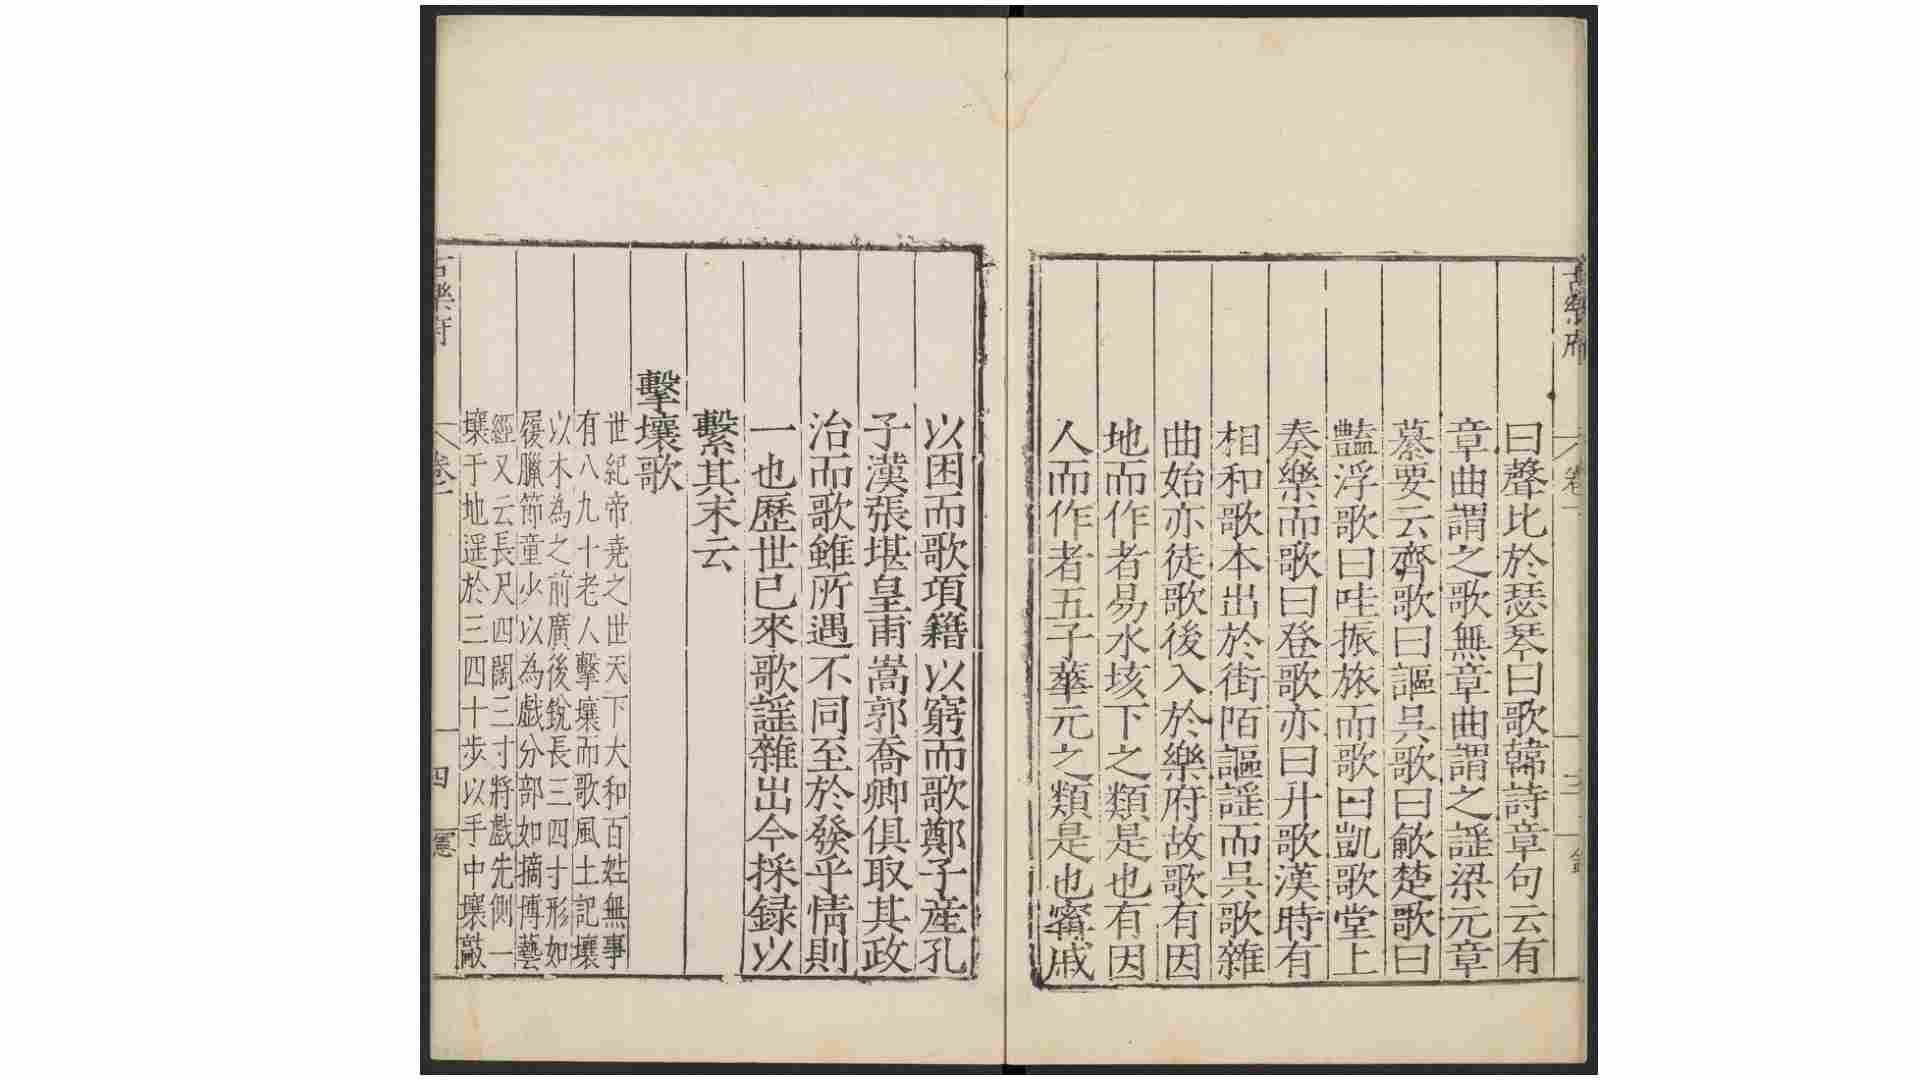 古樂府
卷一
曰聲比於瑟琴曰歌韓詩章句云有
章曲謂之歌無章曲謂之謡梁元章
纂要云齊歌曰謳吳歌曰歈楚歌曰
豔浮歌曰哇振旅而歌曰凱歌堂上
奏樂而歌曰登歌亦曰升歌漢時有
相和歌本出於街陌謳謡而吳歌雜
曲始亦徒歌後入於樂府故歌有因
地而作者易水垓下之類是也有因
人而作者五子華元之類是也甯戚
以困而歌項籍以窮而歌鄭子産孔
子漢張堪皇甫嵩郭喬卿俱取其政
治而歌雖所遇不同至於發乎情則
一也歷世已來歌謡雜出今採録以
繫其末云
擊壤歌
世紀帝堯之世天下大和百姓無事
有八九十老人擊壤而歌風土記壤
以木為之前廣後銳長三四寸形如
履臘節童少以為戲分部如擿博藝
經又云長尺四闊三寸將戲先側一
壤于地遥於三四十步以手中壤敲
古樂府
卷一
四
憲